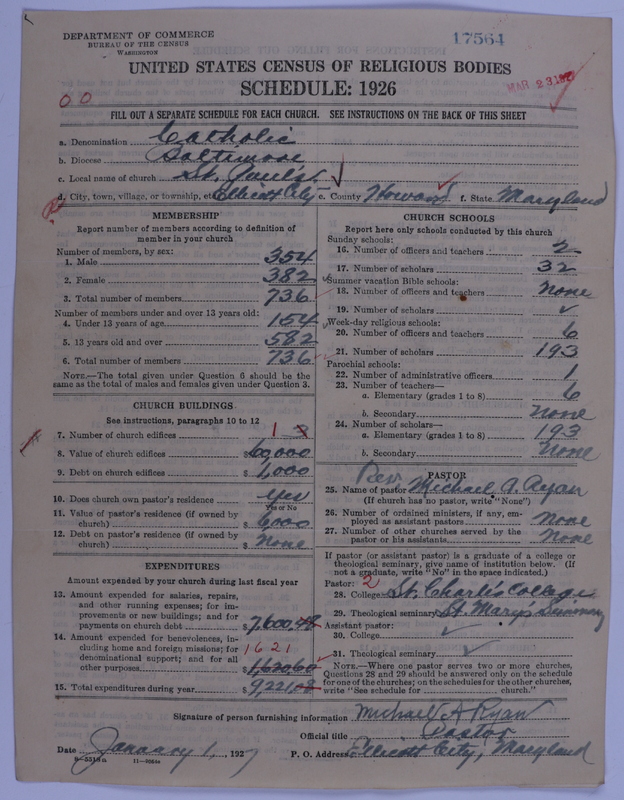 DEPARTMENT OF COMMERCE
BUREAU OF THE CENSUS
WASHINGTON
17564
UNITED STATES CENSUS OF RELIGIOUS BODIES
SCHEDULE: 1926
MAR 23
00
FILL OUT A SEPARATE SCHEDULE FOR EACH CHURCH. SEE INSTRUCTIONS ON THE BACK OF THIS SHEET
a. Denomination Catholic
b. Diocese Baltimore
c. Local name of church St. Paul's
d. City, town, village, or township, etc. Ellicott City e. County Howard f. State Maryland
MEMBERSHIP
Report number of members according to definition of
member in your church
Number of members, by sex:
1. Male 354
2. Female 382
3. Total number of members 736
Number of members under and over 13 years old:
4. Under 13 years of age 154
5. 13 years old and over 582
6. Total number of members 736
NOTE.—The total given under Question 6 should be the
same as the total of males and females given under Question 3.
CHURCH BUILDINGS
See instructions, paragraphs 10 to 12
7. Number of church edifices 1
8. Value of church edifices $ 60,000
9. Debt on church edifices $ 1,000
10. Does church own pastor's residence yes
Yes or No
11. Value of pastor's residence (if owned by
church) $ 6000
12. Debt on pastor's residence (if owned by
church) $ None
EXPENDITURES
Amount expended by your church during last fiscal year
13. Amount expended for salaries, repairs,
and other running expenses; for im-
provements or new buildings; and for
payments on church debt $ 7,600.48
14. Amount expended for benevolences, in-
cluding home and foreign missions; for 1621
denominational support; and for all
other purposes $ 1,620.60
15. Total expenditures during year $ 9,221.08
CHURCH SCHOOLS
Report here only schools conducted by this church
Sunday schools:
16. Number of officers and teachers 2
17. Number of scholars 32
Summer vacation Bible schools:
18. Number of officers and teachers None
19. Number of scholars ✓
Week-day religious schools:
20. Number of officers and teachers 6
21. Number of scholars 193
Parochial schools:
22. Number of administrative officers 1
23. Number of teachers—
a. Elementary (grades 1 to 8) 6
b. Secondary None
24. Number of scholars—
a. Elementary (grades 1 to 8) 193
b. Secondary None
PASTOR
25. Name of pastor Rev. Michael A. Ryan
(If church has no pastor, write "None")
26. Number of ordained ministers, if any, em-
ployed as assistant pastors None
27. Number of other churches served by the
pastor or his assistants None
If pastor (or assistant pastor) is a graduate of a college or
theological seminary, give name of institution below. (If
not a graduate, write "No" in the space indicated.)
Pastor: 2
28. College St. Charles College
29. Theological seminary St. Mary's Seminary
Assistant pastor:
30. College ✓
31. Theological seminary ✓
NOTE.—Where one pastor serves two or more churches,
Questions 28 and 29 should be answered only on the schedule
for one of the churches; on the schedules for the other churches,
write "See schedule for church."
Signature of person furnishing information Michael A Ryan
Official title Pastor
Date January 1, 1927 P. O. Address Ellicott City, Maryland